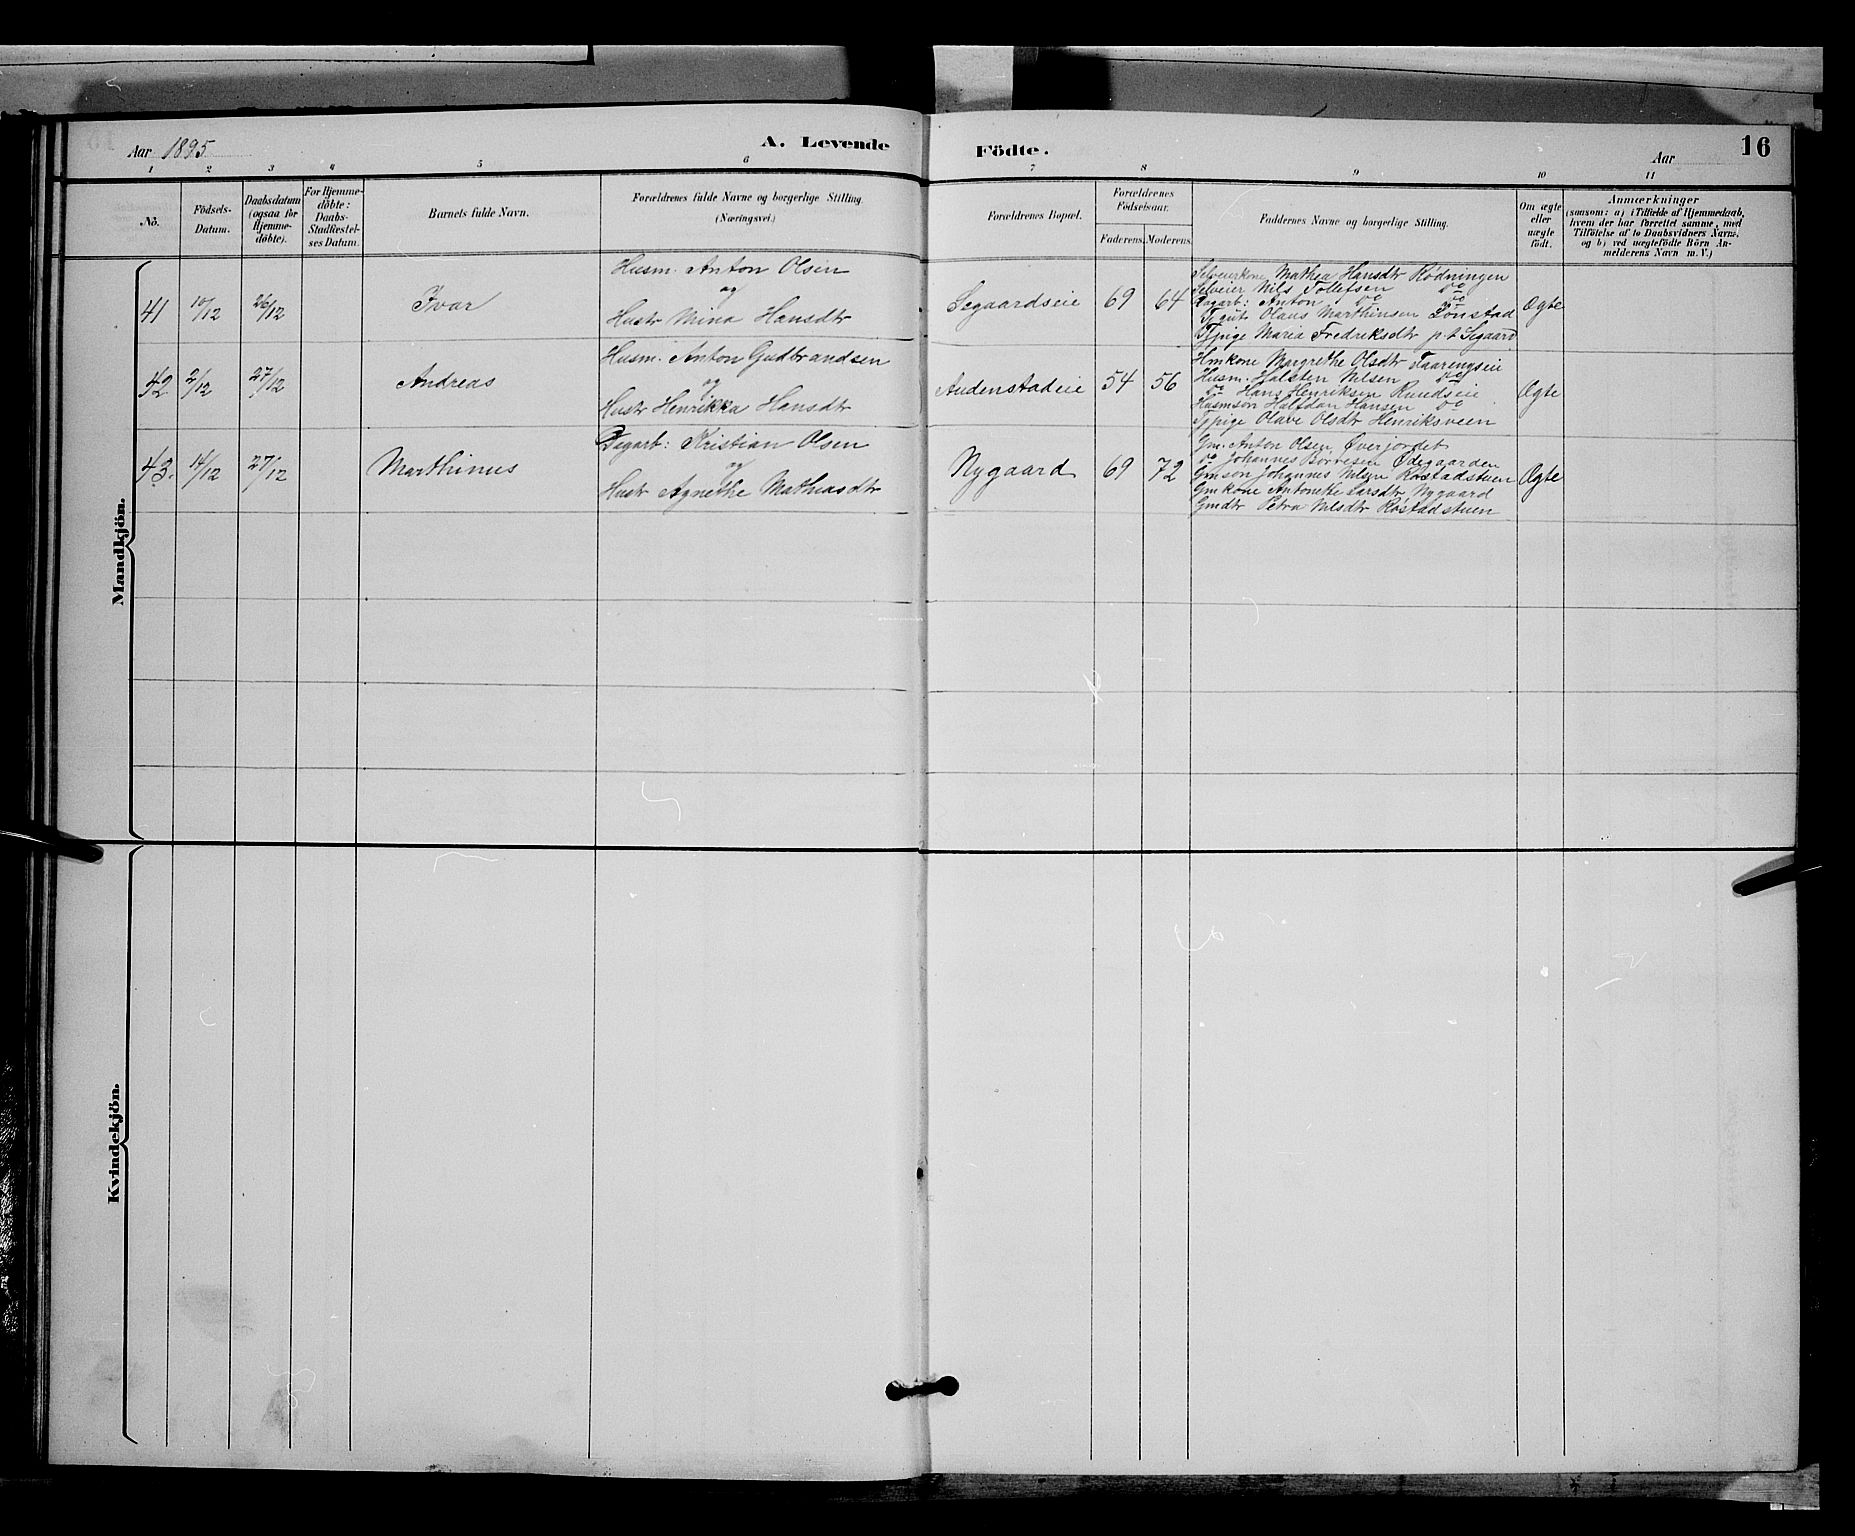 Aar 1895
A. Levende
Födte.
Aar
16
1 2 3 4 5 6 7 8 9 10 11
No.
Födsels-Datum.
Daabsdatum (ogsaa for Hjemme-döbte).
For Hjemme-döbte: Daabs-Stadfæstel-ses Datum.
Barnets fulde Navn.
Forældrenes fulde Navne og borgerlige Stilling.
(Næringsvei.)
Forældrenes Bopæl.
Forældrenes Födselsaar.
Faderens. Moderens.
Faddernes Navne og borgerlige Stilling.
Om ægte eller uægte födt.
Anmærkninger
(saasom: a) i Tilfælde af Hjemmedaab, hvem der har forrettet samme, med Tilföielse af to Daabsvidners Navne, og b) ved uægtefödte Börn Anmelderens Navn m. V.)
Mandkjön.
41 10/12 26/12 Ivar
Husm. Anton Olsen
og
Hustr Mina Hansdtr
Segaardseie 69 64
Selveierkone Mathea Hansdtr Rødningen
Selveier Nils Tollefsen do
Dagarb: Anton do do
Tjgut Olaus Marthinsen Lønstad
Tjpige Maria Fredriksdtr p.t Segaard
Ægte
42. 2/12 27/12 Andreas
Husm. Anton Gudbrandsen
og
Hustr Henrikka Hansdtr
Audenstadeie 54 56
Hmkone Margrethe Olsdtr Taarengseie
Husm. Halsten Nilsen do
do Hans Henriksen Rundseie
Husmson Halfdan Hansen do
Tjpige Olave Olsdtr Henriksveen
Ægte
43. 14/12 27/12 Marthinus
Dagarb: Kristian Olsen
og
Hustr Agnethe Mathiasdtr
Nygaard 69 72
Gm. Anton Olsen Øverjordet
do Johannes Ødegaarden
Gmson Johannes Nilsen Røstadstuen
Gmkone Antonethe Larsdtr Nygaard
Gmdtr Petra Nilsdtr Røstadstuen
Ægte
Kvindekjön.